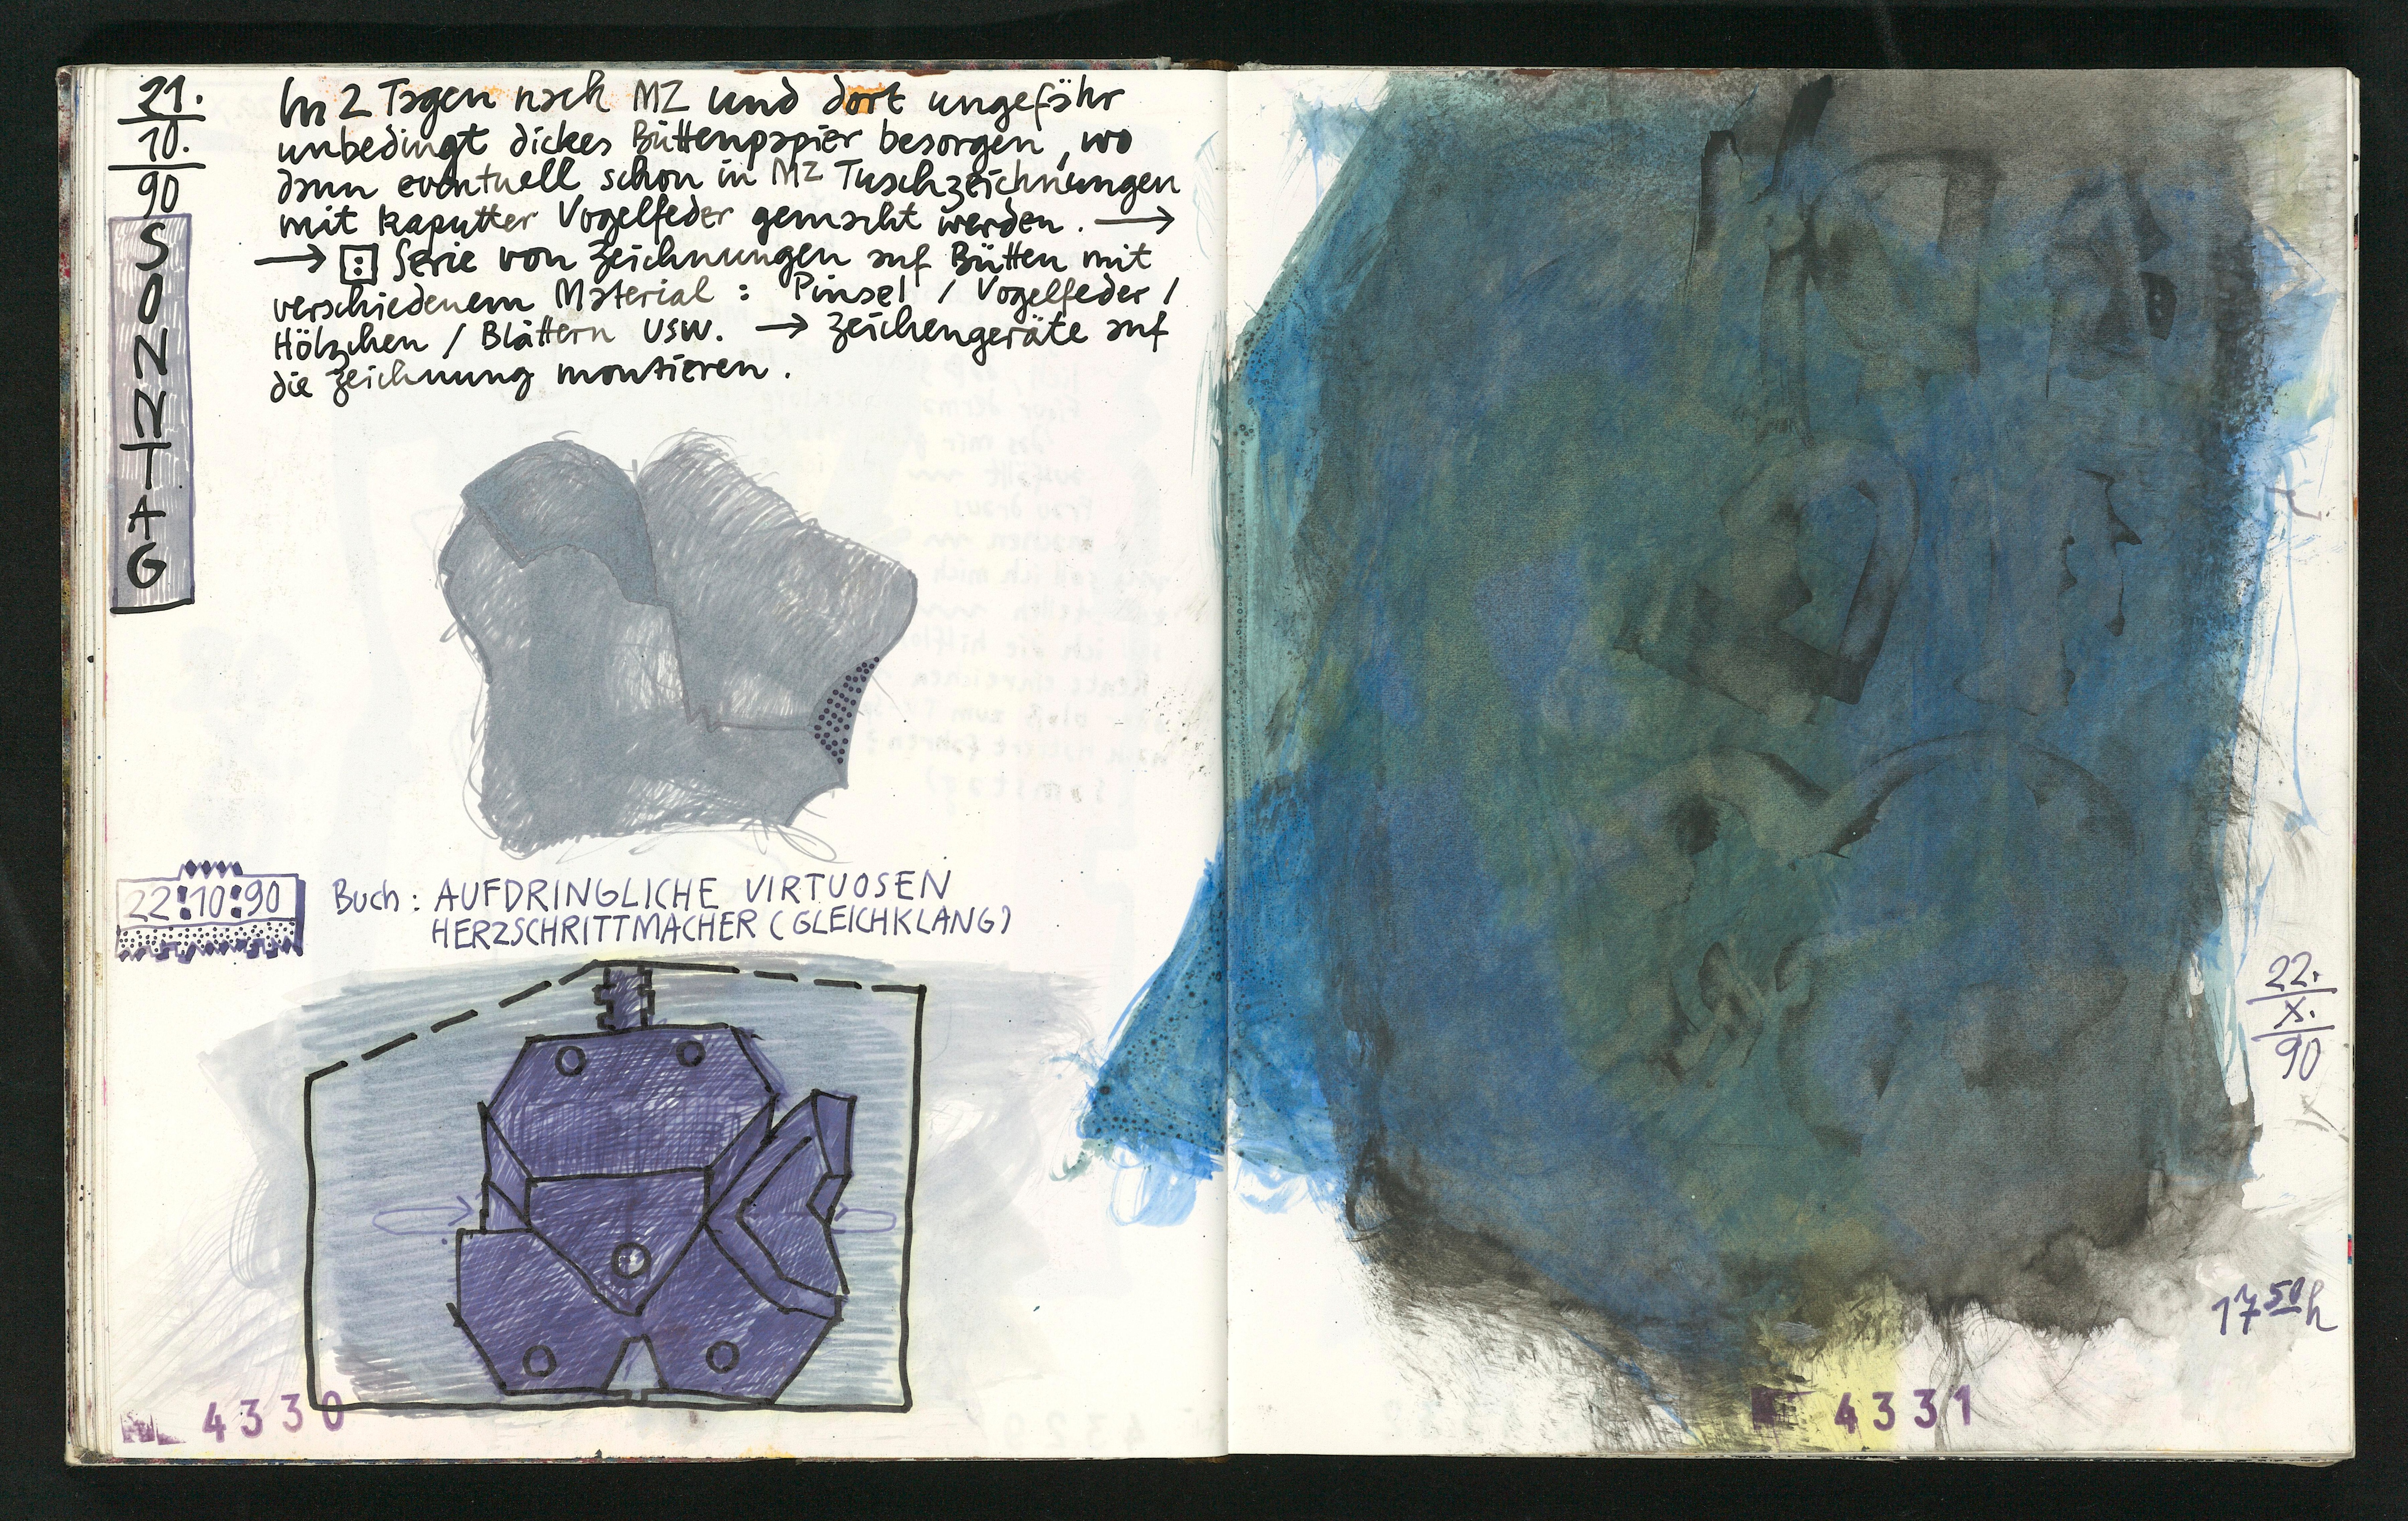 21.
10.
90
SONNTAG
In 2 Tagen nach MZ und dort ungefähr
unbedingt dickes Büttenpapier besorgen, wo
dann eventuell schon in MZ Tuschzeichnungen
mit kaputter Vogelfeder gemacht werden. →
→ : Serie von Zeichnungen auf Bütten mit
verschiedenem Material : Pinsel / Vogelfeder /
Hölzchen / Blättern usw. → Zeichengeräte auf
die Zeichnung montieren.
22:10:90
Buch : AUFDRINGLICHE VIRTUOSEN
HERZSCHRITTMACHER (GLEICHKLANG)
4330
22.
X.
90
17 50 h
4331